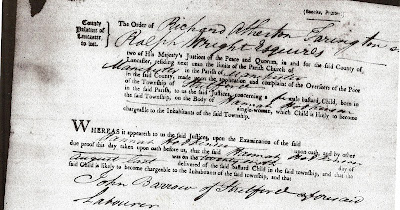 County
Palatine of
Lancaster,
to wit.
The Order of Richard Atherton Farington and
Ralph Wright Esquires
two of His Majesty's Justices of the Peace and Quorum, in and for the said County of
Lancaster, residing next unto the limits of the Parish Church of
Manchester in the Parish of Manchester
in the said County, made upon the application and complaint of the Overseers of the Poor
of the Township of Stretford
in the said Parish, to us the said Justices, concerning a male bastard Child, born in
the said Township, on the Body of
singlewoman, which Child is likely to become
chargeable to the Inhabitants of the said Township.
WHEREAS it appeareth to us the said Justices, upon the Examination of the said
Hannah upon oath, and by other
due proof this day taken upon oath before us, that she the said Hannah
was on the day of
August last delivered of the said bastard Child in the said township, and that the
said Child is likely to become chargeable to the Inhabitants of the said township, and that
John Barrow of Stretford aforesaid
Labourer